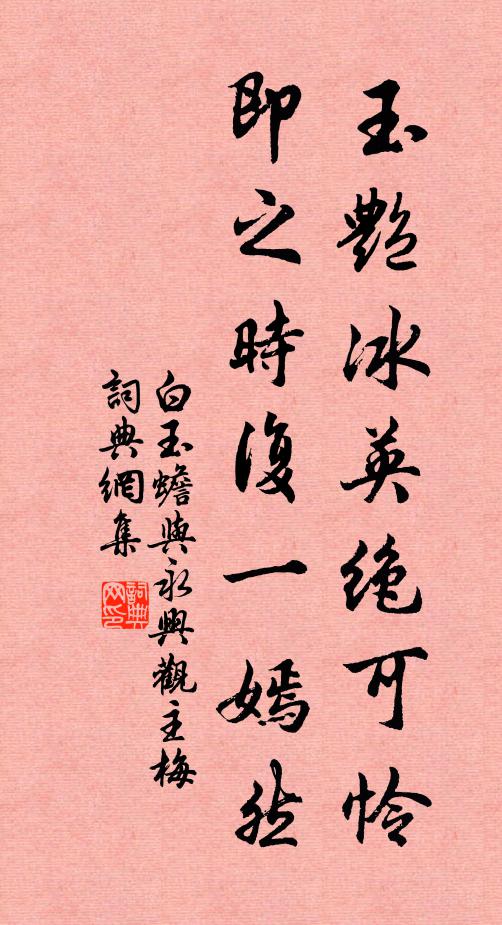 玉艷冰英絶可怜
即之時復一嫣然
白玉蟾與永興觀主梅
詞典網集
詞典网印